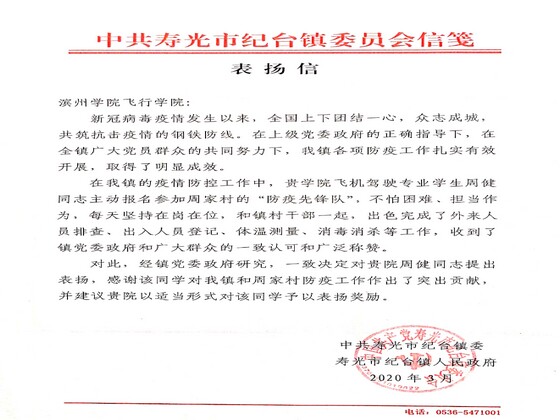 中共寿光市纪台镇委员会信笺
表扬信
滨州学院飞行学院：
新冠病毒疫情发生以来，全国上下团结一心，众志成城，
共筑抗击疫情的钢铁防线。在上级党委政府的正确指导下，在
全镇广大党员群众的共同努力下，我镇各项防疫工作扎实有效
开展，取得了明显成效。
在我镇的疫情防控工作中，贵学院飞机驾驶专业学生周健
同志主动报名参加周家村的“防疫先锋队”，不怕困难、担当作
为，每天坚持在岗在位，和镇村干部一起，出色完成了外来人
员排查、出入人员登记、体温测量、消毒消杀等工作，收到了
镇党委政府和广大群众的一致认可和广泛称赞。
对此，经镇党委政府研究，一致决定对贵院周健同志提出
表扬，感谢该同学对我镇和周家村防疫工作作出了突出贡献，
并建议贵院以适当形式对该同学予以表扬奖励。
中共寿光市纪台镇委
寿光市纪台镇人民政府
2020年3月
电话：0536-5471001